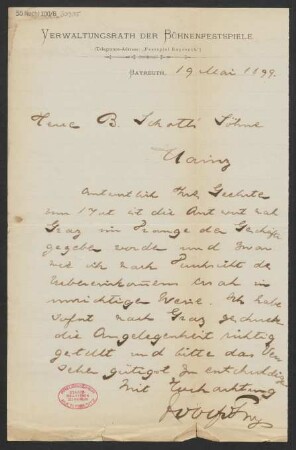 VERWALTUNGSRATH DER BÜHNENFESTSPIELE.
(Telegramm-Adresse: „Festspiel Bayreuth“)
BAYREUTH, 19 Mai 1899.
Herrn B. Schott's Söhne
Mainz
Antwortlich Ihr Geehrtes
vom 17ct ist die Antwort nach
Graz im Drange der Geschäfte
gegeben worden und zwar
wie ich nach
Uebereinkommen in
unrichtiger Weise. Ich habe
sofort nach Graz
die Angelegenheit richtig
gestellt und bitte das Ver
sehen gütigst zu entschuldigen
Mit Hochachtung